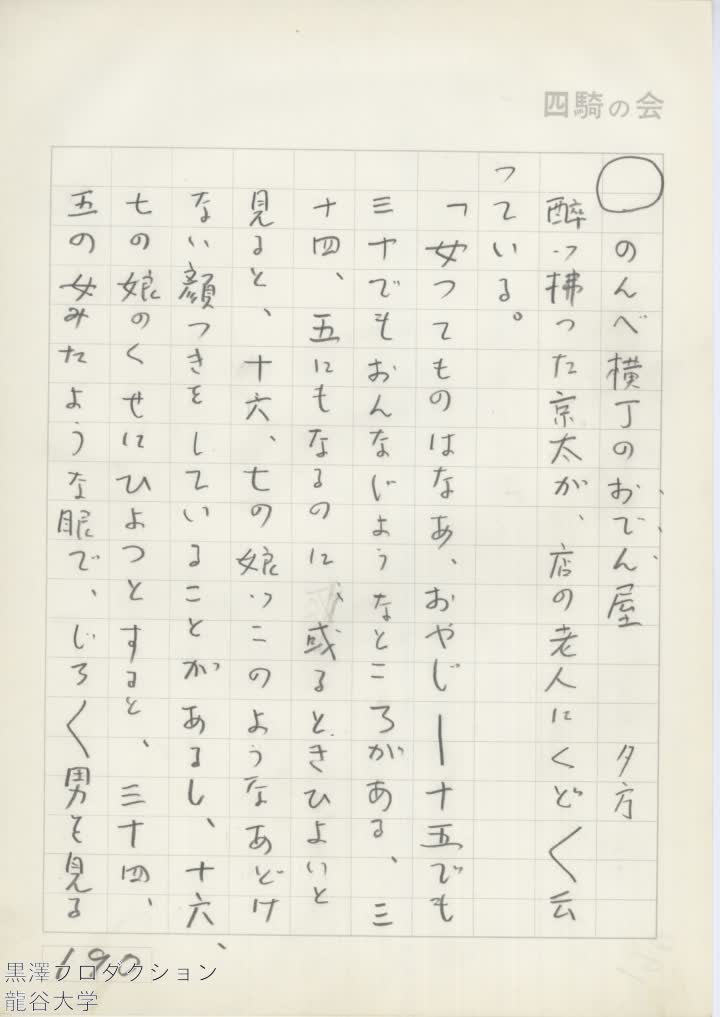 四騎の会
◯のんべ横丁のおでん屋　夕方
酔っ拂った京太が、店の老人にくどく／＼云
っている。
「女つてものはなあ、おやじ──十五でも
三十でもおんなじようなところがある、三
十四、五にもなるのに、或るときひよいと
見ると、十六、七の娘っこのようなあどけ
ない顔つきをしていることがあるし、十六、
七の娘のくせにひよつとすると、三十四、
五の女みたような眼で、じろ／＼男を見る
190
黒澤プロダクション
龍谷大学